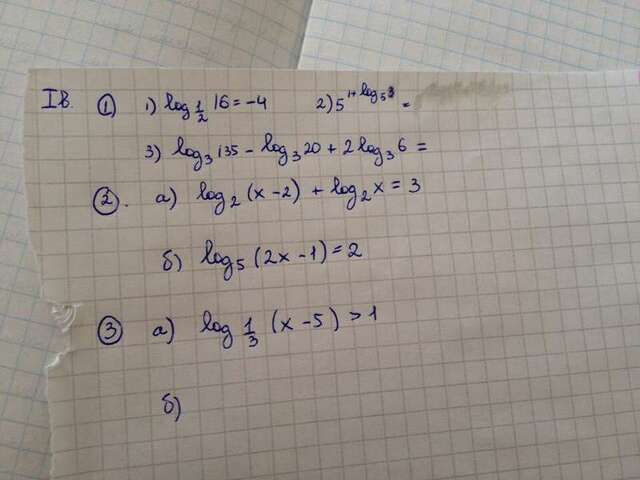 I в. ① 1) log_{1/2} 16 = -4 2) 5^{1+log_5 3} =
3) log_3 135 - log_3 20 + 2 log_3 6 =
②. а) log_2 (x-2) + log_2 x = 3
б) log_5 (2x-1) = 2
③ а) log_{1/3} (x-5) > 1
б)